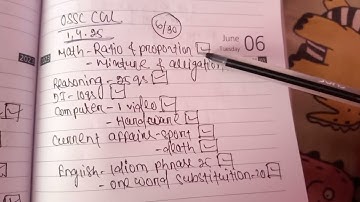 OSSC CGL
1,4.25
6/30
June 06
Tuesday
Math - Ratio & proportion
- Mixture & alligation
Reasoning - 25 qs
DI - 10qs
Computer - 1 video
- Hardware
Current affairs - sport
- death
English - Idiom phrase 25
- one word substituition - 20